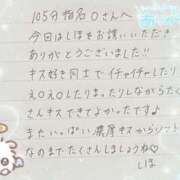 105分指名Oさんへ
今回はしほをお誘いいただき
ありがとうございました!!
キス好き同士でイチャイチャしたり
えOえOしたりまったりしながらたく
さんキスできてよかったです♪
またいっぱい濃厚キスからソフト
なのまでたくさんしましょうね♡
しほ